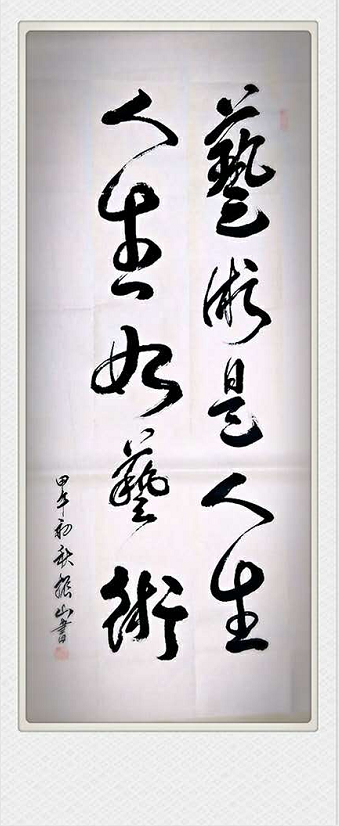 藝術是人生
人生如藝術
甲午初秋振山書